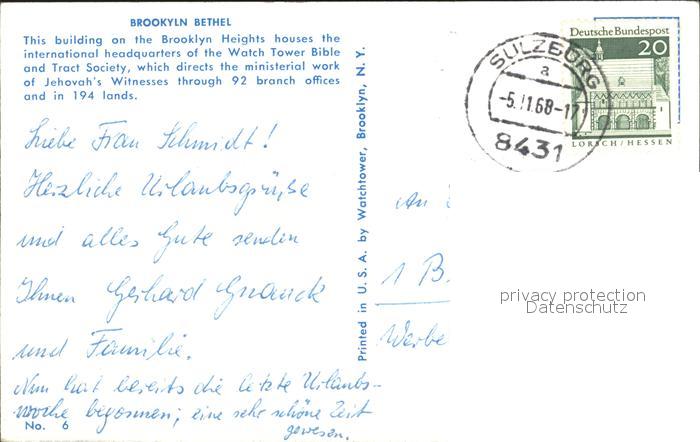 BROOKYLN BETHEL
This building on the Brooklyn Heights houses the
international headquarters of the Watch Tower Bible
and Tract Society, which directs the ministerial work
of Jehovah's Witnesses through 92 branch offices
and in 194 lands.
Liebe Frau Schmidt!
Herzliche Urlaubsgrüße
und alles Gute senden
Ihnen Gerhard
und Familie.
Nun hat bereits die letzte Urlaubs-
woche begonnen; eine sehr schöne Zeit
gewesen.
No. 6
Printed in U.S.A. by Watchtower, Brooklyn, N.Y.
Deutsche Bundespost
20
LORSCH/HESSEN
SULZBÜRG
a
-5.11.68-17
8431
An
1 B.
privacy protection
Datenschutz